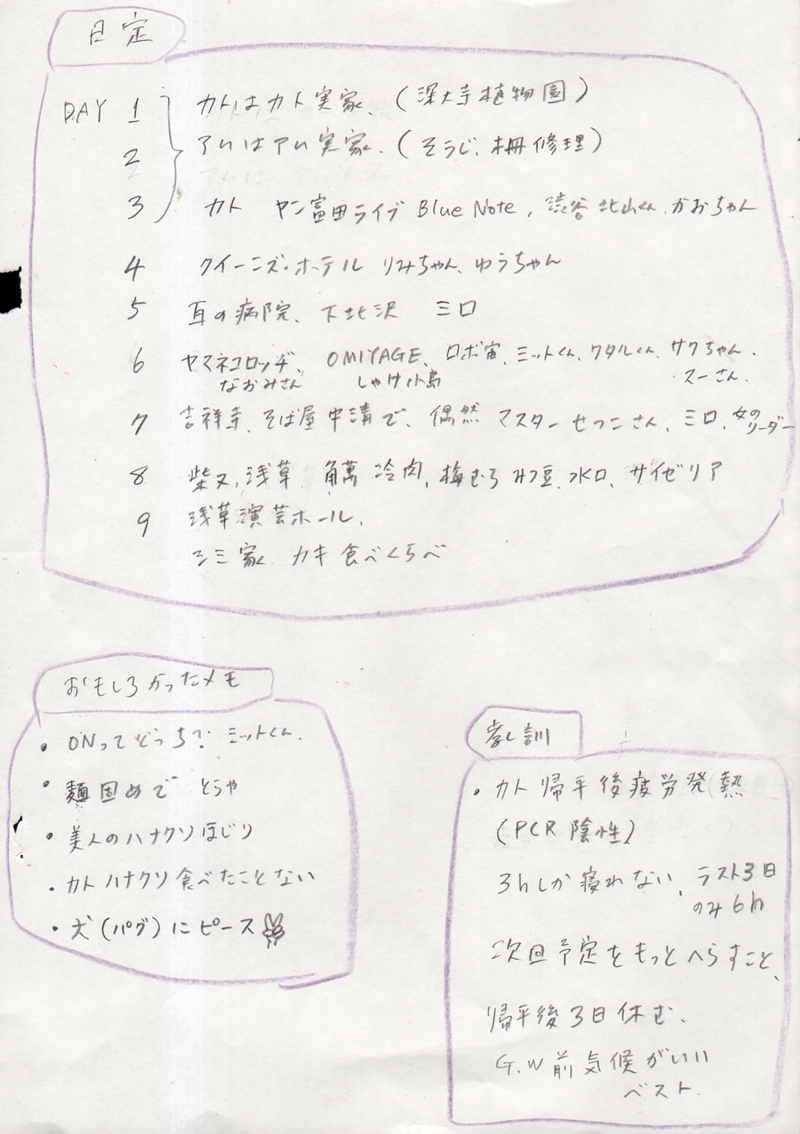 日定
DAY 1 カトはカト実家、(深大寺植物園)
2 アムはアム実家、(そうじ、柵修理)
3 カト ヤン富田ライブ Blue Note, 渋谷 北山くん、かおちゃん
4 クイーンズ・ホテル りみちゃん、ゆうちゃん
5 耳の病院、下北沢 ミロ
6 ヤマネコロッヂ、 OMIYAGE、ロボ宙、ミットくん、ワタルくん、サクちゃん、
なおみさん しゃけ小島 スーさん、
7 吉祥寺、そば屋 中清で、偶然 マスター せつこさん、ミロ、女のリーダー
8 柴又、浅草 角萬 冷肉、梅むら みつ豆、水口、サイゼリア
9 浅草演芸ホール、
シミ家 カキ食べくらべ
おもしろかったメモ
・ONってどっちで? ミットくん、
・麺固めで とらや
・美人のハナクソほじり
・カト ハナクソ食べたことない
・犬(パグ)にピース
教訓
・カト 帰平後疲労発熱
(PCR 陰性)
3hしか寝れない、ラスト3日
のみ6h
次回予定をもっとへらすこと、
帰平後3日休む、
G.W前気候がいい
ベスト.